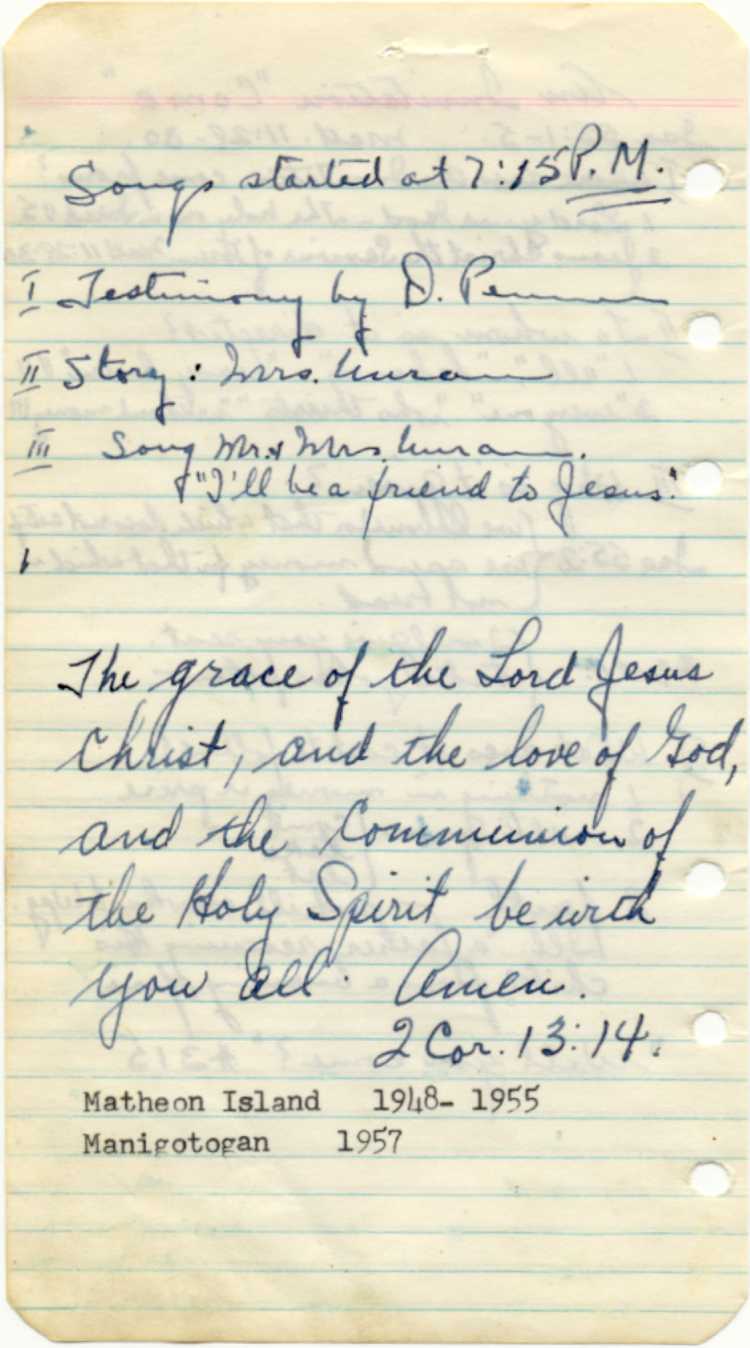 Songs started at 7:15 P.M.
I Testimony by D. Penman
II Story: Mrs.
III Song Mr. & Mrs.
"I'll be a friend to Jesus."
The grace of the Lord Jesus
Christ, and the love of God,
and the Communion of
the Holy Spirit be with
you all. Amen.
2 Cor. 13:14.
Matheon Island 1948- 1955
Manigotogan 1957